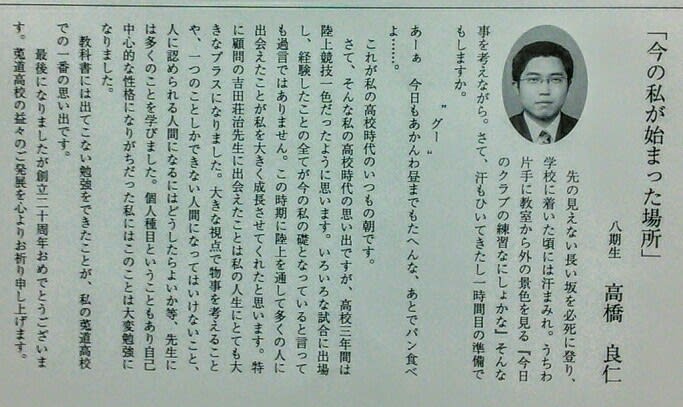 「今の私が始まった場所」
八期生　高橋　良仁
先の見えない長い坂を必死に登り、
学校に着いた頃には汗まみれ。うちわ
片手に教室から外の景色を見る『今日
のクラブの練習なにしよかな』そんな
事を考えながら。さて、汗もひいてきたし一時間目の準備で
もしますか。
〝グー〟
あーぁ　今日もあかんわ昼までもたへんな、あとでパン食べ
よ……。
これが私の高校時代のいつもの朝です。
さて、そんな私の高校時代の思い出ですが、高校三年間は
陸上競技一色だったように思います。いろいろな試合に出場
し、経験したことの全てが今の私の礎となっていると言って
も過言ではありません。この時期に陸上を通して多くの人に
出会えたことが私を大きく成長させてくれたと思います。特
に顧問の吉田荘治先生に出会えたことは私の人生にとても大
きなプラスになりました。大きな視点で物事を考えること
や、一つのことしかできない人間になってはいけないこと、
人に認められる人間になるにはどうしたらよいか等、先生に
は多くのことを学びました。個人種目ということもあり自己
中心的な性格になりがちだった私にはこのことは大変勉強に
なりました。
教科書には出てこない勉強をできたことが、私の莵道高校
での一番の思い出です。
最後になりましたが創立二十周年おめでとうございま
す。莵道高校の益々のご発展を心よりお祈り申し上げます。